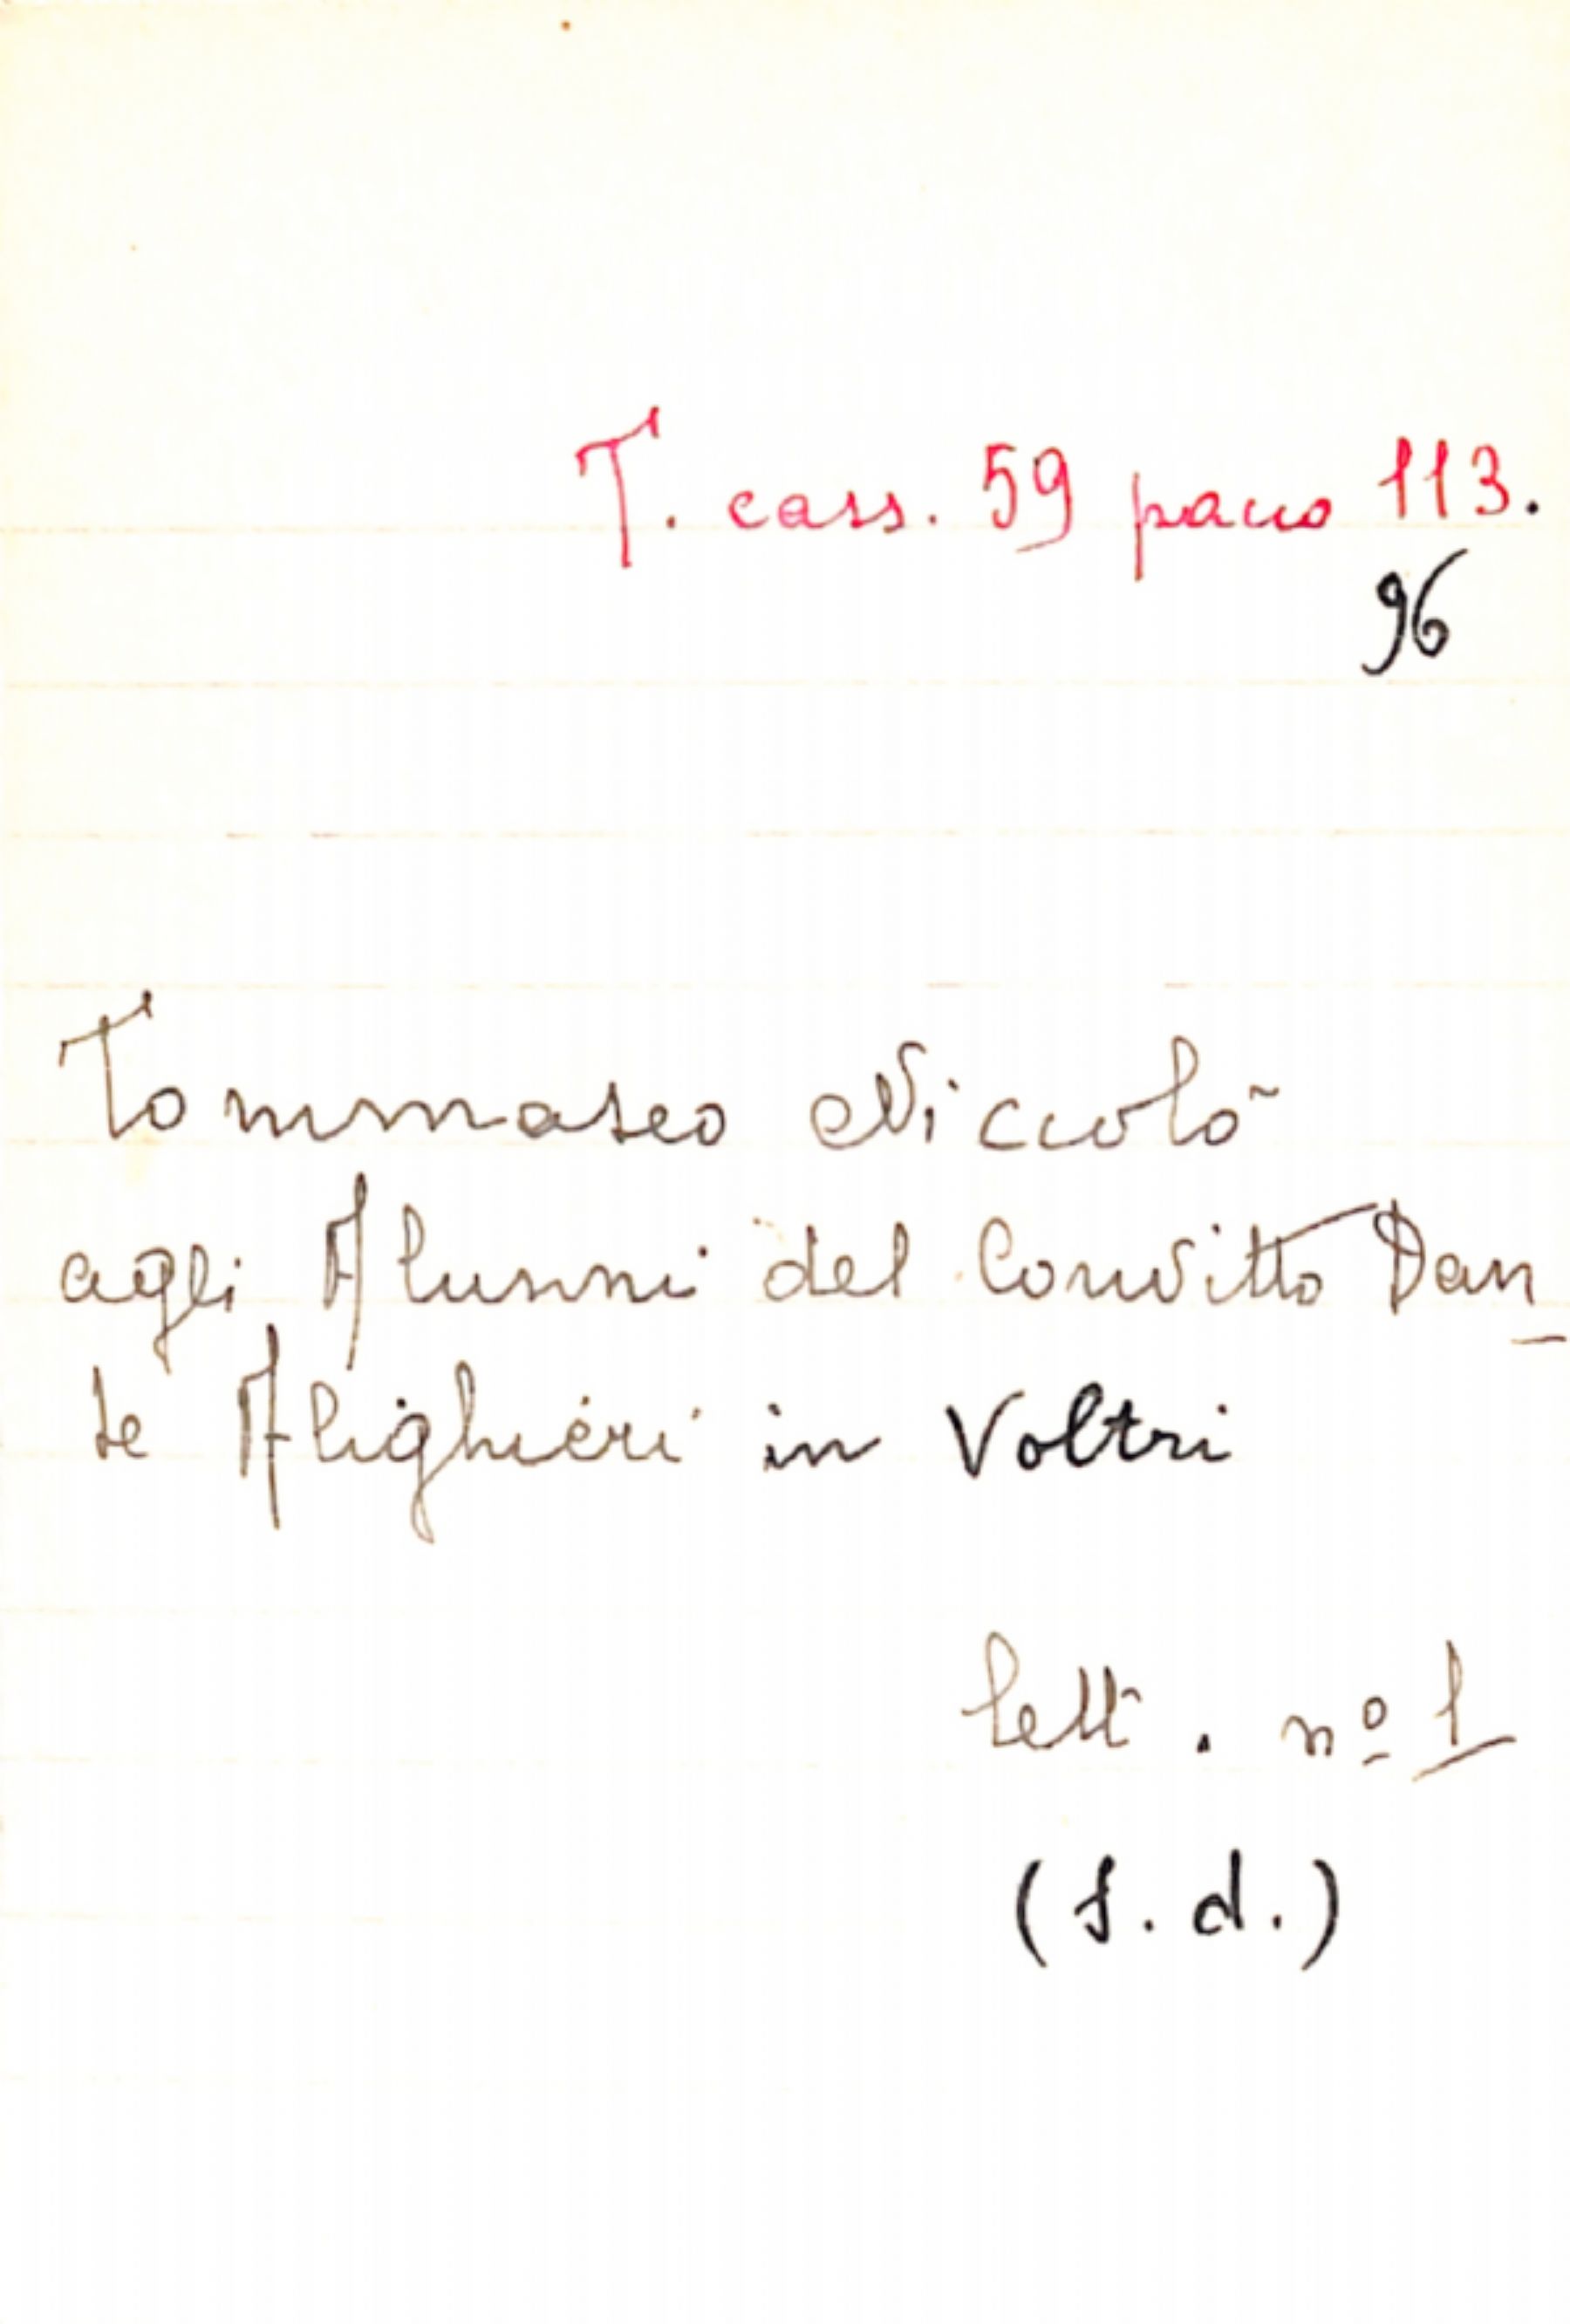 T. cass. 59 pacco 113.
96
Tommaseo Niccolò
agli Alunni del Convitto Dan
te Alighieri in Voltri
lett. nº 1
(s.d.)